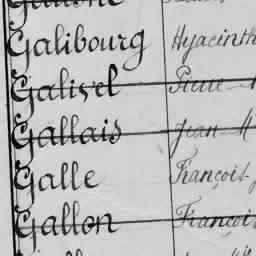 Galibourg Hyacinth
Galisel Pierre
Gallais Jean M
Galle François
Gallon Françoi